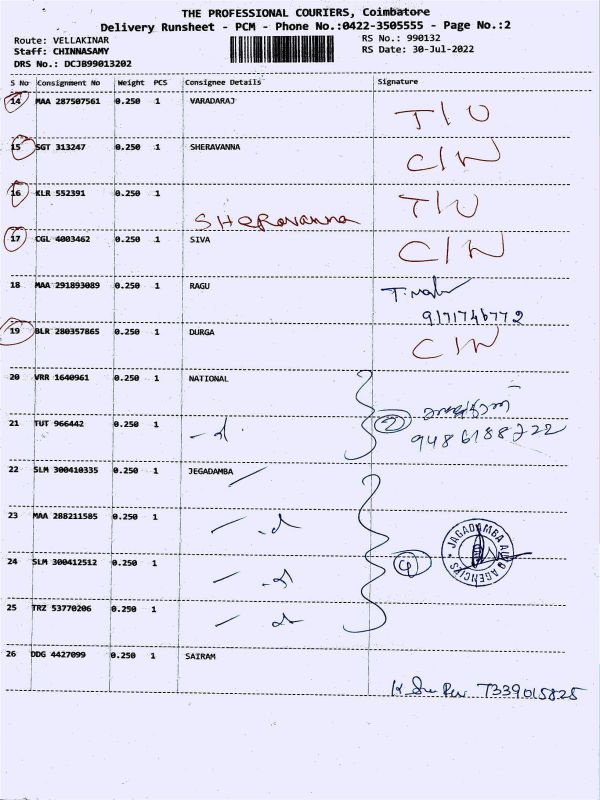 THE PROFESSIONAL COURIERS, Coimbatore
Delivery Runsheet - PCM - Phone No.:0422-3505555 - Page No.:2
Route: VELLAKINAR RS No.: 990132
Staff: CHINNASAMY RS Date: 30-Jul-2022
DRS No.: DCJB99013202
S No Consignment No Weight PCS Consignee Details Signature
14 MAA 287507561 0.250 1 VARADARAJ T/U
15 SGT 313247 0.250 1 SHERAVANNA C/N
16 KLR 552391 0.250 1 T/U
SHERavanna
17 CGL 4003462 0.250 1 SIVA C/N
18 MAA 291893089 0.250 1 RAGU
9171746772
19 BLR 280357865 0.250 1 DURGA C/N
20 VRR 1640961 0.250 1 NATIONAL
21 TUT 966442 0.250 1 2
9486188722
22 SLM 300410335 0.250 1 JEGADAMBA
23 MAA 288211585 0.250 1
24 SLM 300412512 0.250 1 4 JAGADAMBA AUTO AGENCIES
25 TRZ 53770206 0.250 1
26 DDG 4427099 0.250 1 SAIRAM
7339015825